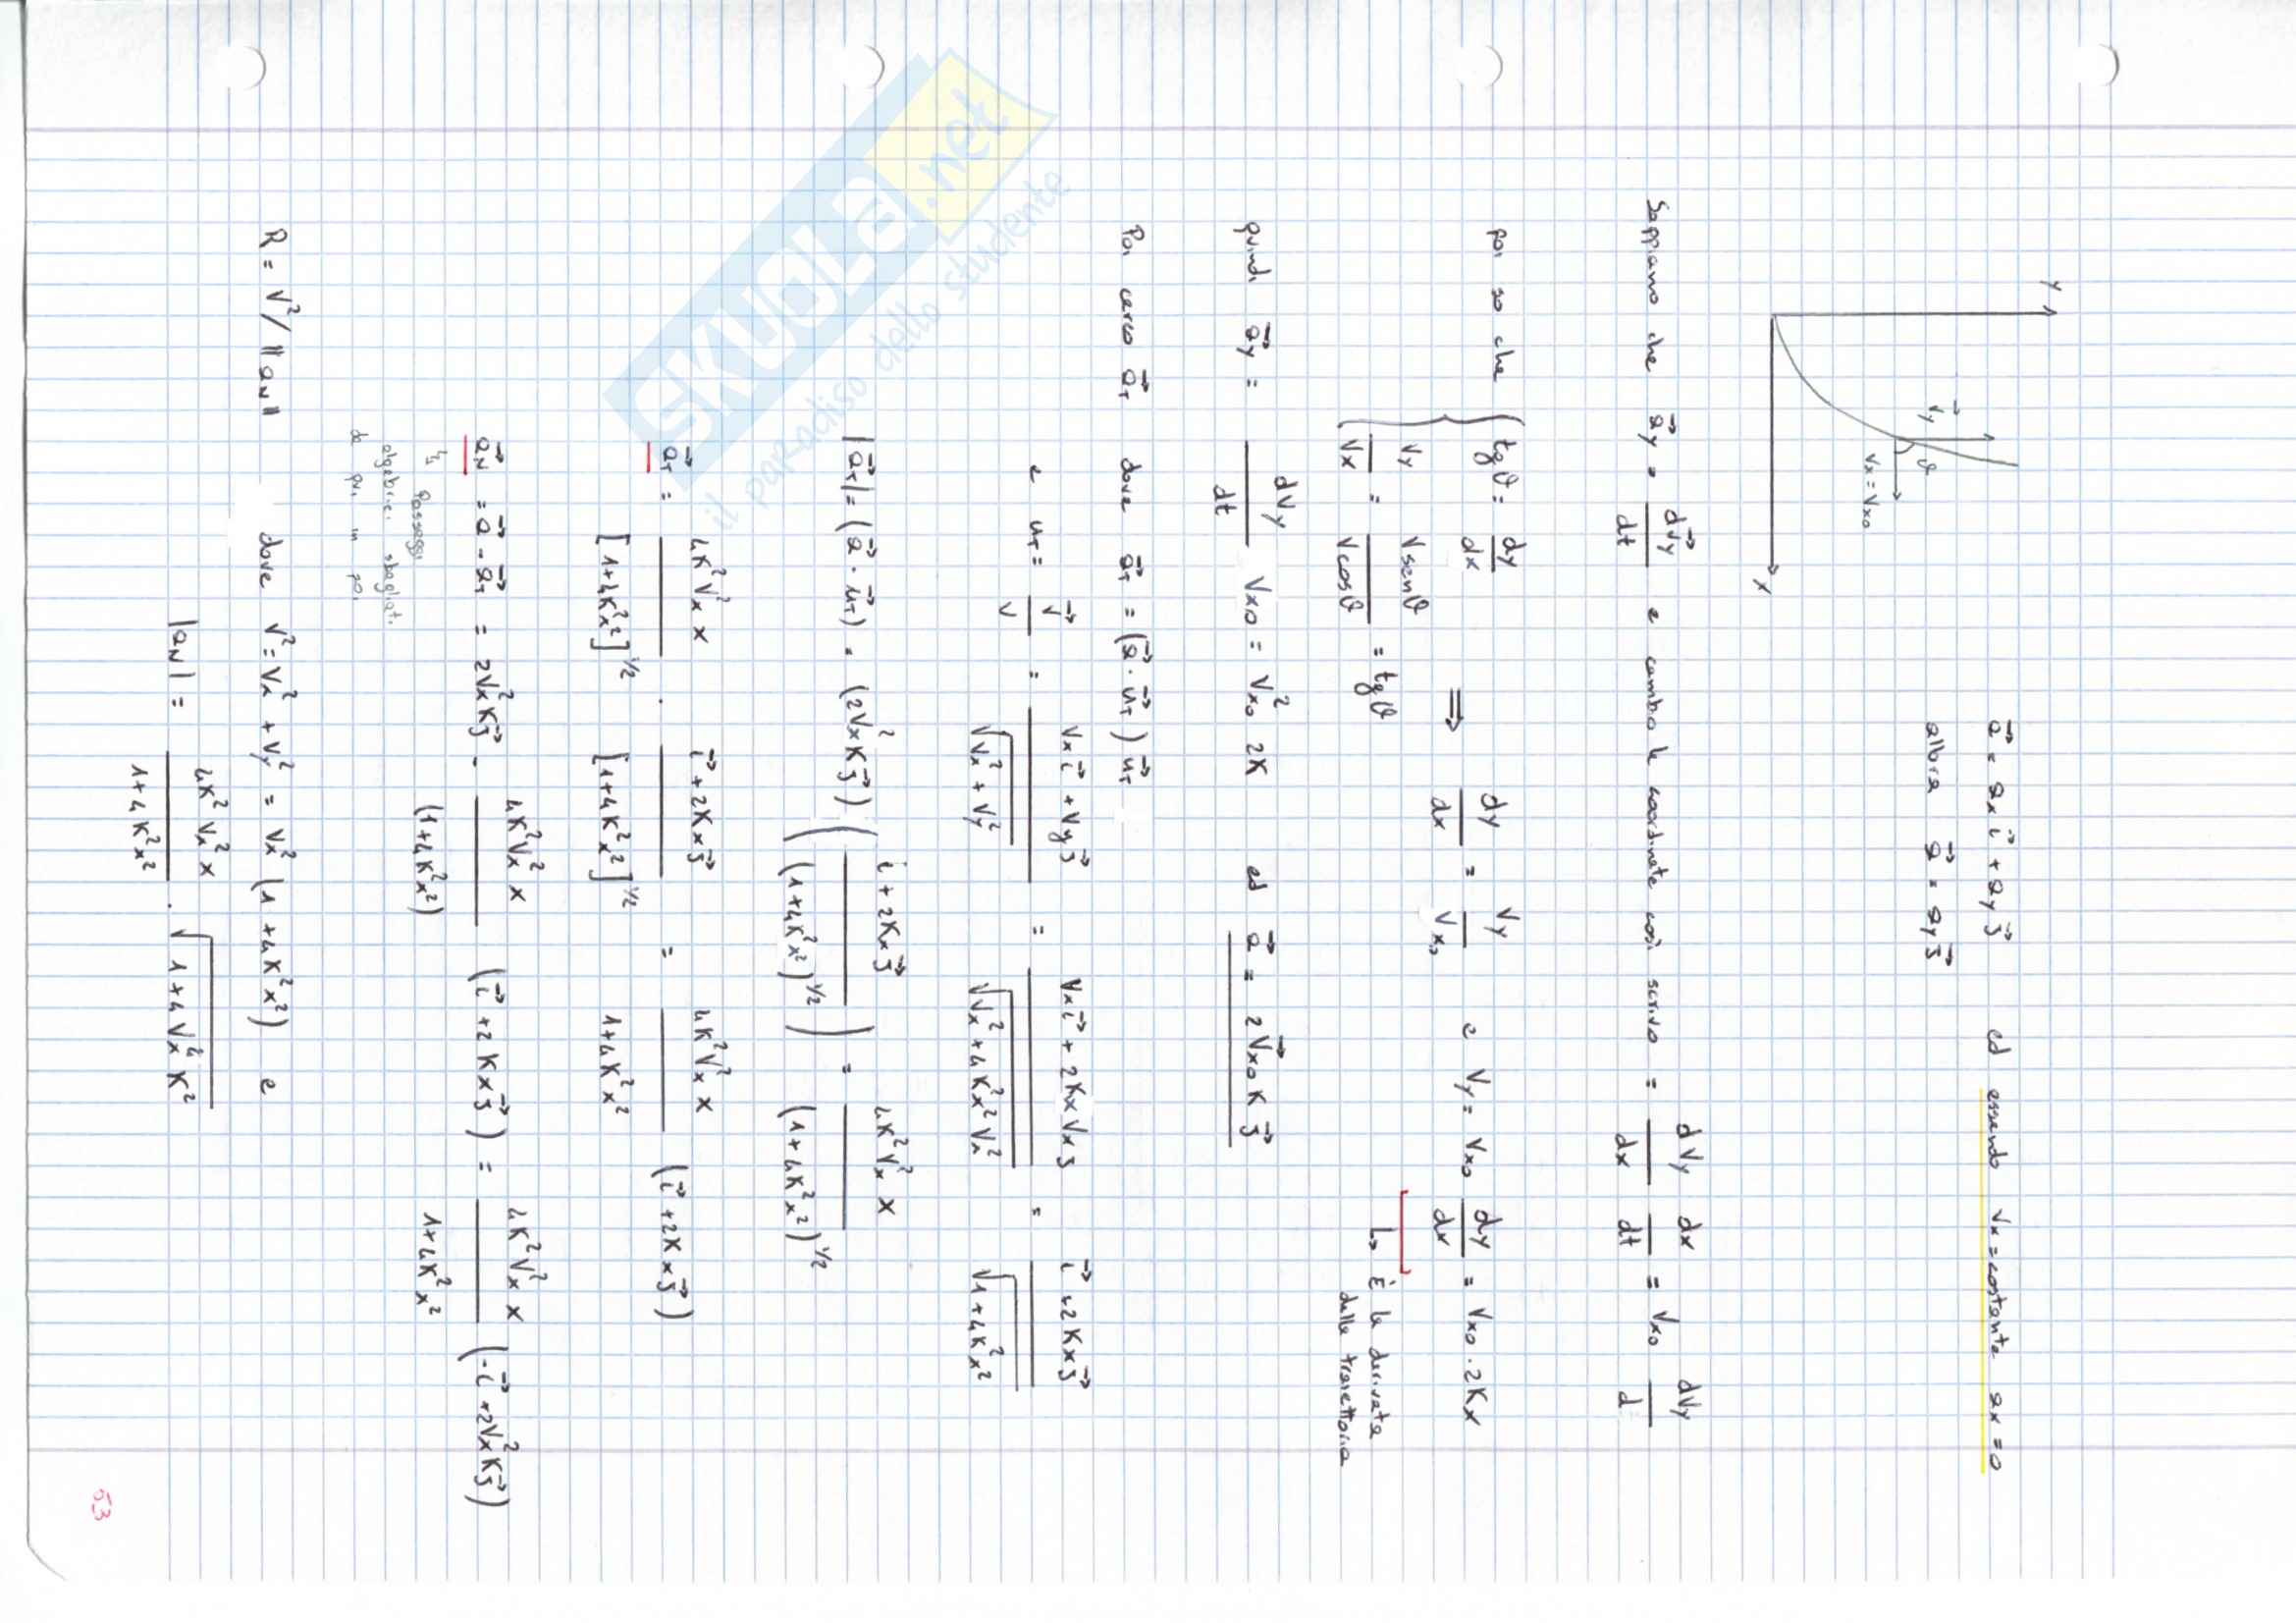 y
x
Vy
ϑ
Vx = Vx₀
a⃗ = ax i⃗ + ay j⃗ ed essendo Vx = costante ax = 0
allora a⃗ = ay j⃗
Sappiamo che a⃗y = dV⃗y/dt e cambio le coordinate così scrivo = dVy/dx dx/dt = Vx₀ dVy/d
poi so che { tgϑ = dy/dx ⇒ dy/dx = Vy/Vx₀ e Vy = Vx₀ dy/dx = Vx₀ · 2Kx
Vy/Vx = V senϑ/V cosϑ = tgϑ
↳ È la derivata
della traiettoria
quindi a⃗y = dVy/dt Vx₀ = Vx₀² 2K ed a⃗ = 2V⃗x₀ K j⃗
Poi cerco a⃗T dove a⃗T = (a⃗ · u⃗T) u⃗T
e uT = V⃗/V = (Vx i⃗ + Vy j⃗)/√(Vx² + Vy²) = (Vx i⃗ + 2Kx Vx j)/√(Vx² + 4K²x² Vx²) = (i⃗ + 2Kx j⃗)/√(1+4K²x²)
|a⃗T| = (a⃗ · u⃗T) = (2Vx² K j⃗) ((i + 2Kx j⃗)/(1+4K²x²)^1/2) = 4K²Vx² x/(1+4K²x²)^1/2
a⃗T = 4K²Vx² x/[1+4K²x²]^1/2 · (i⃗ + 2Kx j⃗)/[1+4K²x²]^1/2 = 4K²Vx² x/(1+4K²x²) (i⃗ + 2Kx j⃗)
a⃗N = a⃗ - a⃗T = 2Vx² K j⃗ - 4K²Vx² x/(1+4K²x²) (i⃗ + 2Kx j⃗) = 4K²Vx² x/(1+4K²x²) (-i⃗ + 2Vx² K j⃗)
↳ Passaggi
algebrici sbagliati
da qui in poi
R = V²/||aN|| dove V² = Vx² + Vy² = Vx² (1 + 4K²x²) e
|aN| = 4K² Vx² x/(1+4K²x²) · √(1+4Vx⁴ K²)
53
SKUOLa.net
il paradiso dello studente